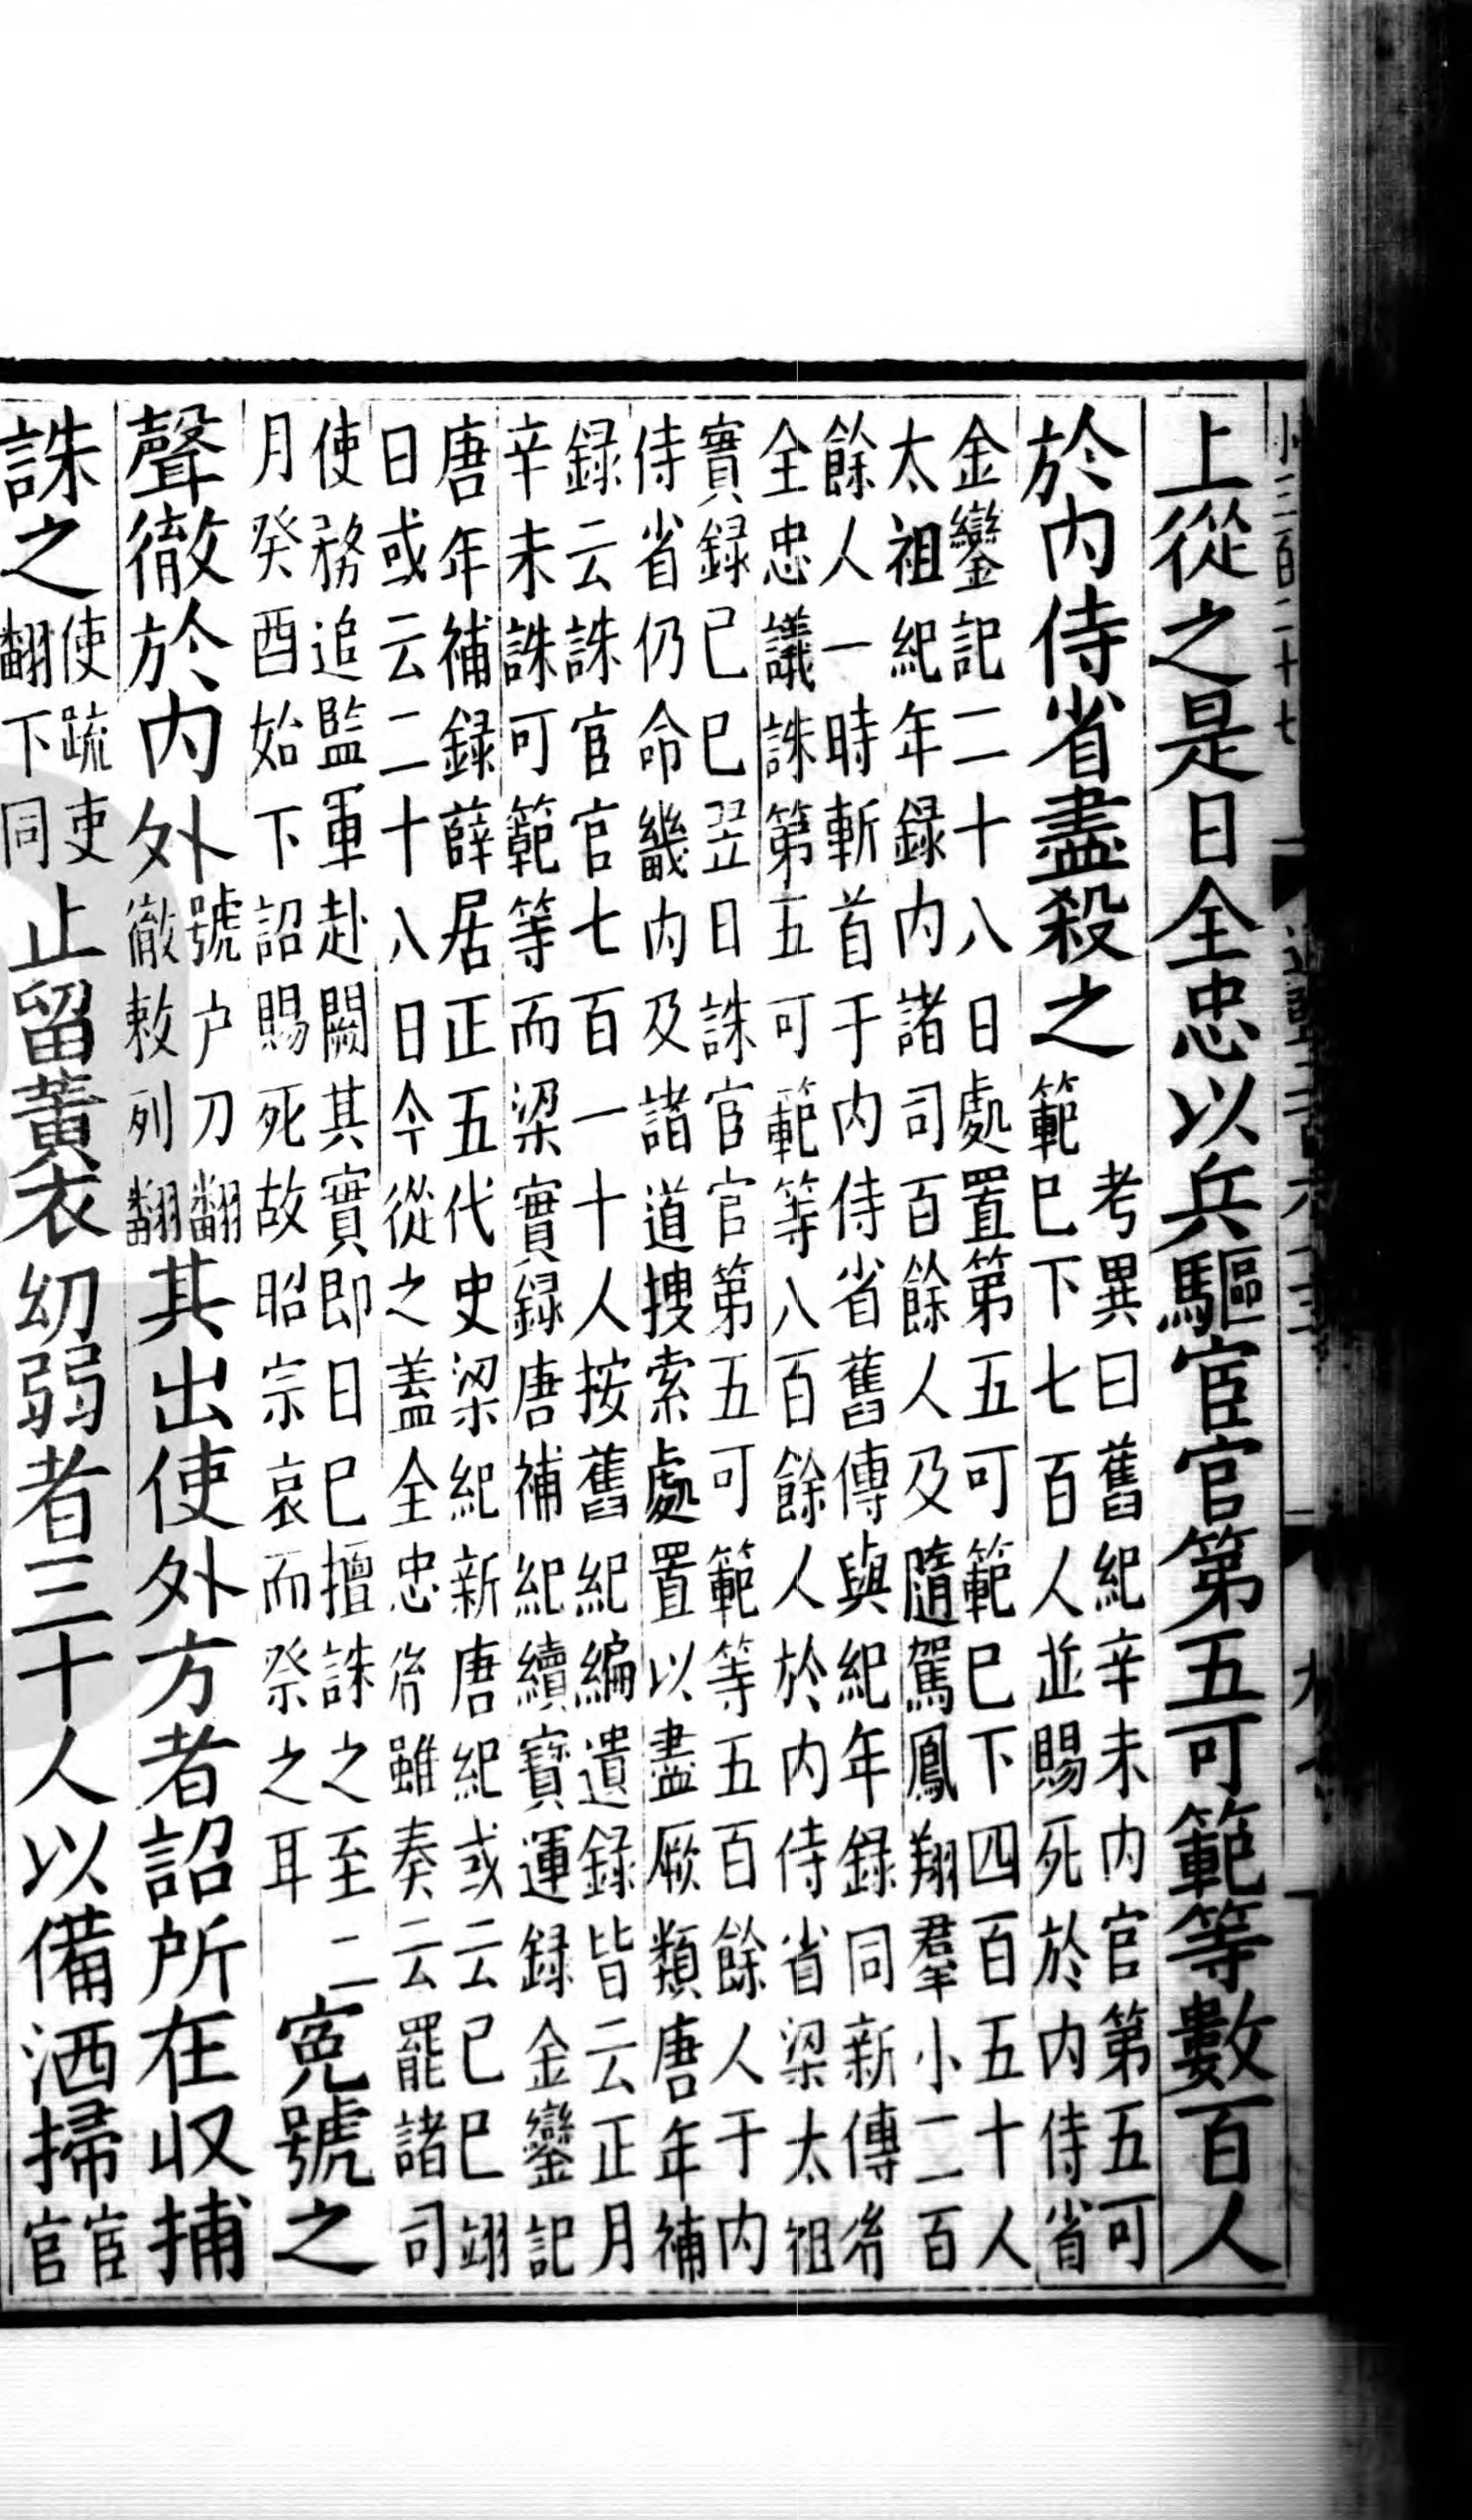 小三百二十七
上從之是日全忠以兵驅宦官第五可範等數百人
於内侍省盡殺之
考異曰舊紀辛未内官第五可
範巳下七百人並賜死於内侍省
金鑾記二十八日處置第五可範巳下四百五十人
太祖紀年録内諸司百餘人及隨駕鳳翔羣小二百
餘人一時斬首于内侍省舊傳與紀年録同新傳後
全忠議誅第五可範等八百餘人於内侍省梁太祖
實録己巳翌日誅宦官第五可範等五百餘人于内
侍省仍命畿内及諸道搜索處置以盡厥類唐年補
録云誅宦官七百一十人按舊紀編遺録皆云正月
辛未誅可範等而梁實録唐補紀續寶運録金鑾記
唐年補録薛居正五代史梁紀新唐紀或云己巳翊
日或云二十八日今從之蓋全忠後雖奏云罷諸司
使務追監軍赴闕其實即日巳擅誅之至二
月癸酉始下詔賜死故昭宗哀而祭之耳
寃號之
聲徹於内外
號户刀翻
徹敕列翻
其出使外方者詔所在収捕
誅之
使疏吏
翻下同
止留黄衣幼弱者三十人以備洒掃
宦
官